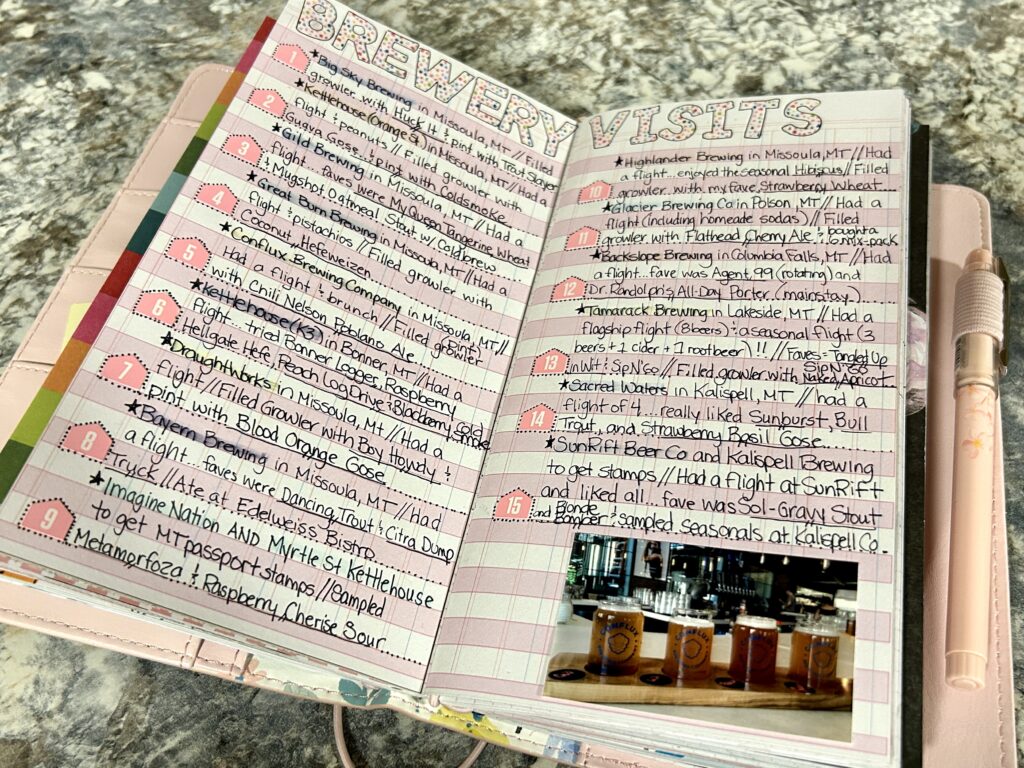 BREWERY
1 ★Big Sky Brewing in Missoula, MT // Filled
growler with Huck It & pint with Trout Slayer
2 ★Kettlehouse (Orange St.) in Missoula, MT // Had a
flight & peanuts // Filled growler with
Guava Gose & pint with Coldsmoke
3 ★Gild Brewing in Missoula, MT // Had a
flight...faves were My Queen Tangerine Wheat
& Mugshot Oatmeal Stout w/ Coldbrew
4 ★Great Burn Brewing in Missoula, MT // Had a
flight & pistachios // Filled growler with
Coconut Hefeweizen
5 ★Conflux Brewing Company in Missoula, MT //
Had a flight & brunch // Filled growler
with Chili Nelson Poblano Ale
6 ★Kettlehouse (K3) in Bonner, MT // Had a
flight...tried Bonner Logger, Raspberry
Hellgate Hefe, Peach Log Drive & Blackberry Cold Smoke
7 ★DraughtWorks in Missoula, Mt // Had a
flight // Filled Growler with Boy Howdy &
pint with Blood Orange Gose
8 ★Bayern Brewing in Missoula, MT // Had
a flight...faves were Dancing Trout & Citra Dump
Truck // Ate at Edelweiss Bistro
9 ★Imagine Nation AND Myrtle St Kettlehouse
to get MT passport stamps // Sampled
Metamorfoza & Raspberry Cherise Sour
VISITS
★Highlander Brewing in Missoula, MT // Had
a flight...enjoyed the seasonal Hibiscus // Filled
10 growler with my fave, Strawberry Wheat
★Glacier Brewing Co in Polson, MT // Had a
flight (including homeade sodas) // Filled
11 growler with Flathead Cherry Ale & bought a 6 mix-pack
★Backslope Brewing in Columbia Falls, MT // Had
a flight...fave was Agent 99 (rotating) and
12 Dr. Randolph's All-Day Porter (mainstay)
★Tamarack Brewing in Lakeside, MT // Had a
flagship flight (8 beers) & a seasonal flight (3
beers + 1 cider + 1 rootbeer)!! // Faves = Tangled Up
13 in Wit & Sip N' Go // Filled growler with Sip N' Go Naked Apricot
★Sacred Waters in Kalispell, MT // had a
14 flight of 4...really liked Sunburst, Bull
Trout, and Strawberry Basil Gose
★SunRift Beer Co and Kalispell Brewing
to get stamps // Had a flight at SunRift
15 and liked all...fave was Sol-Gravy Stout
and Blonde Bomber & sampled seasonals at Kalispell Co.
CONFLUX